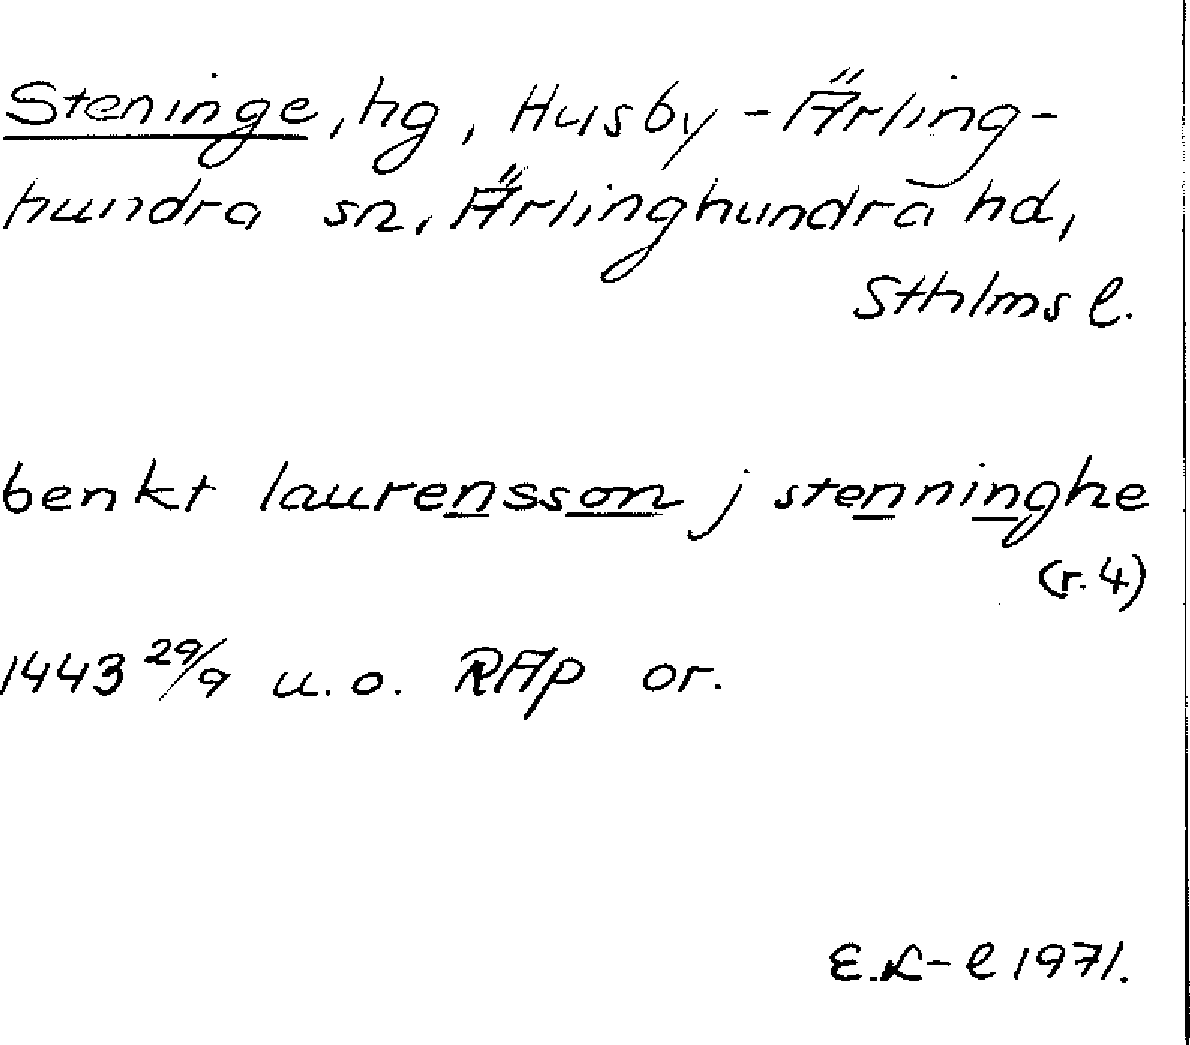 Steninge, hg, Husby-Ärling-
hundra sn, Ärlinghundra hd,
Sthlms l.
benkt laurensson j stenninghe
(r. 4)
1443 29/9 u.o. RAp or.
E.L-l 1971.